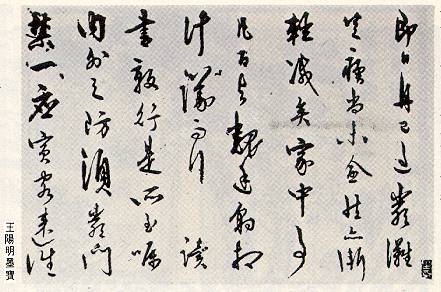 即日舟已過嚴灘
足瘡尚未愈然亦漸
輕減矣家中事
凡百與魏廷豹相
計議而行讀
書敦行是所至囑
內外之防須嚴門
禁一應賓客來往
王陽明墨寶